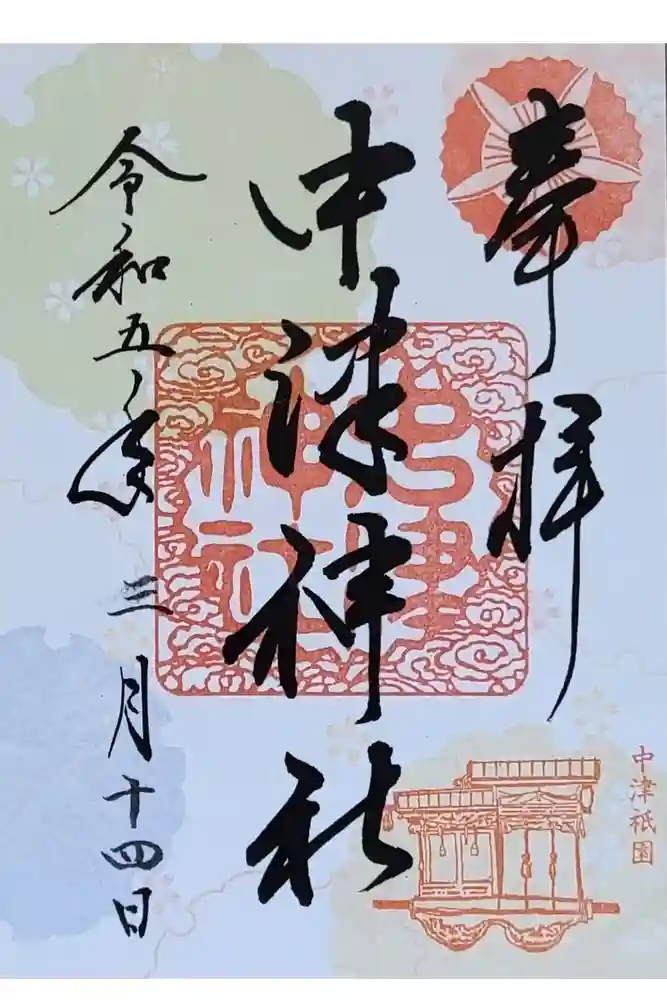 奉拝
中津神社
令和五年
三月十四日
中津祇園